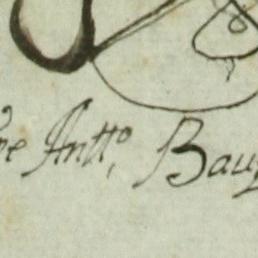 pe Antto, Bau